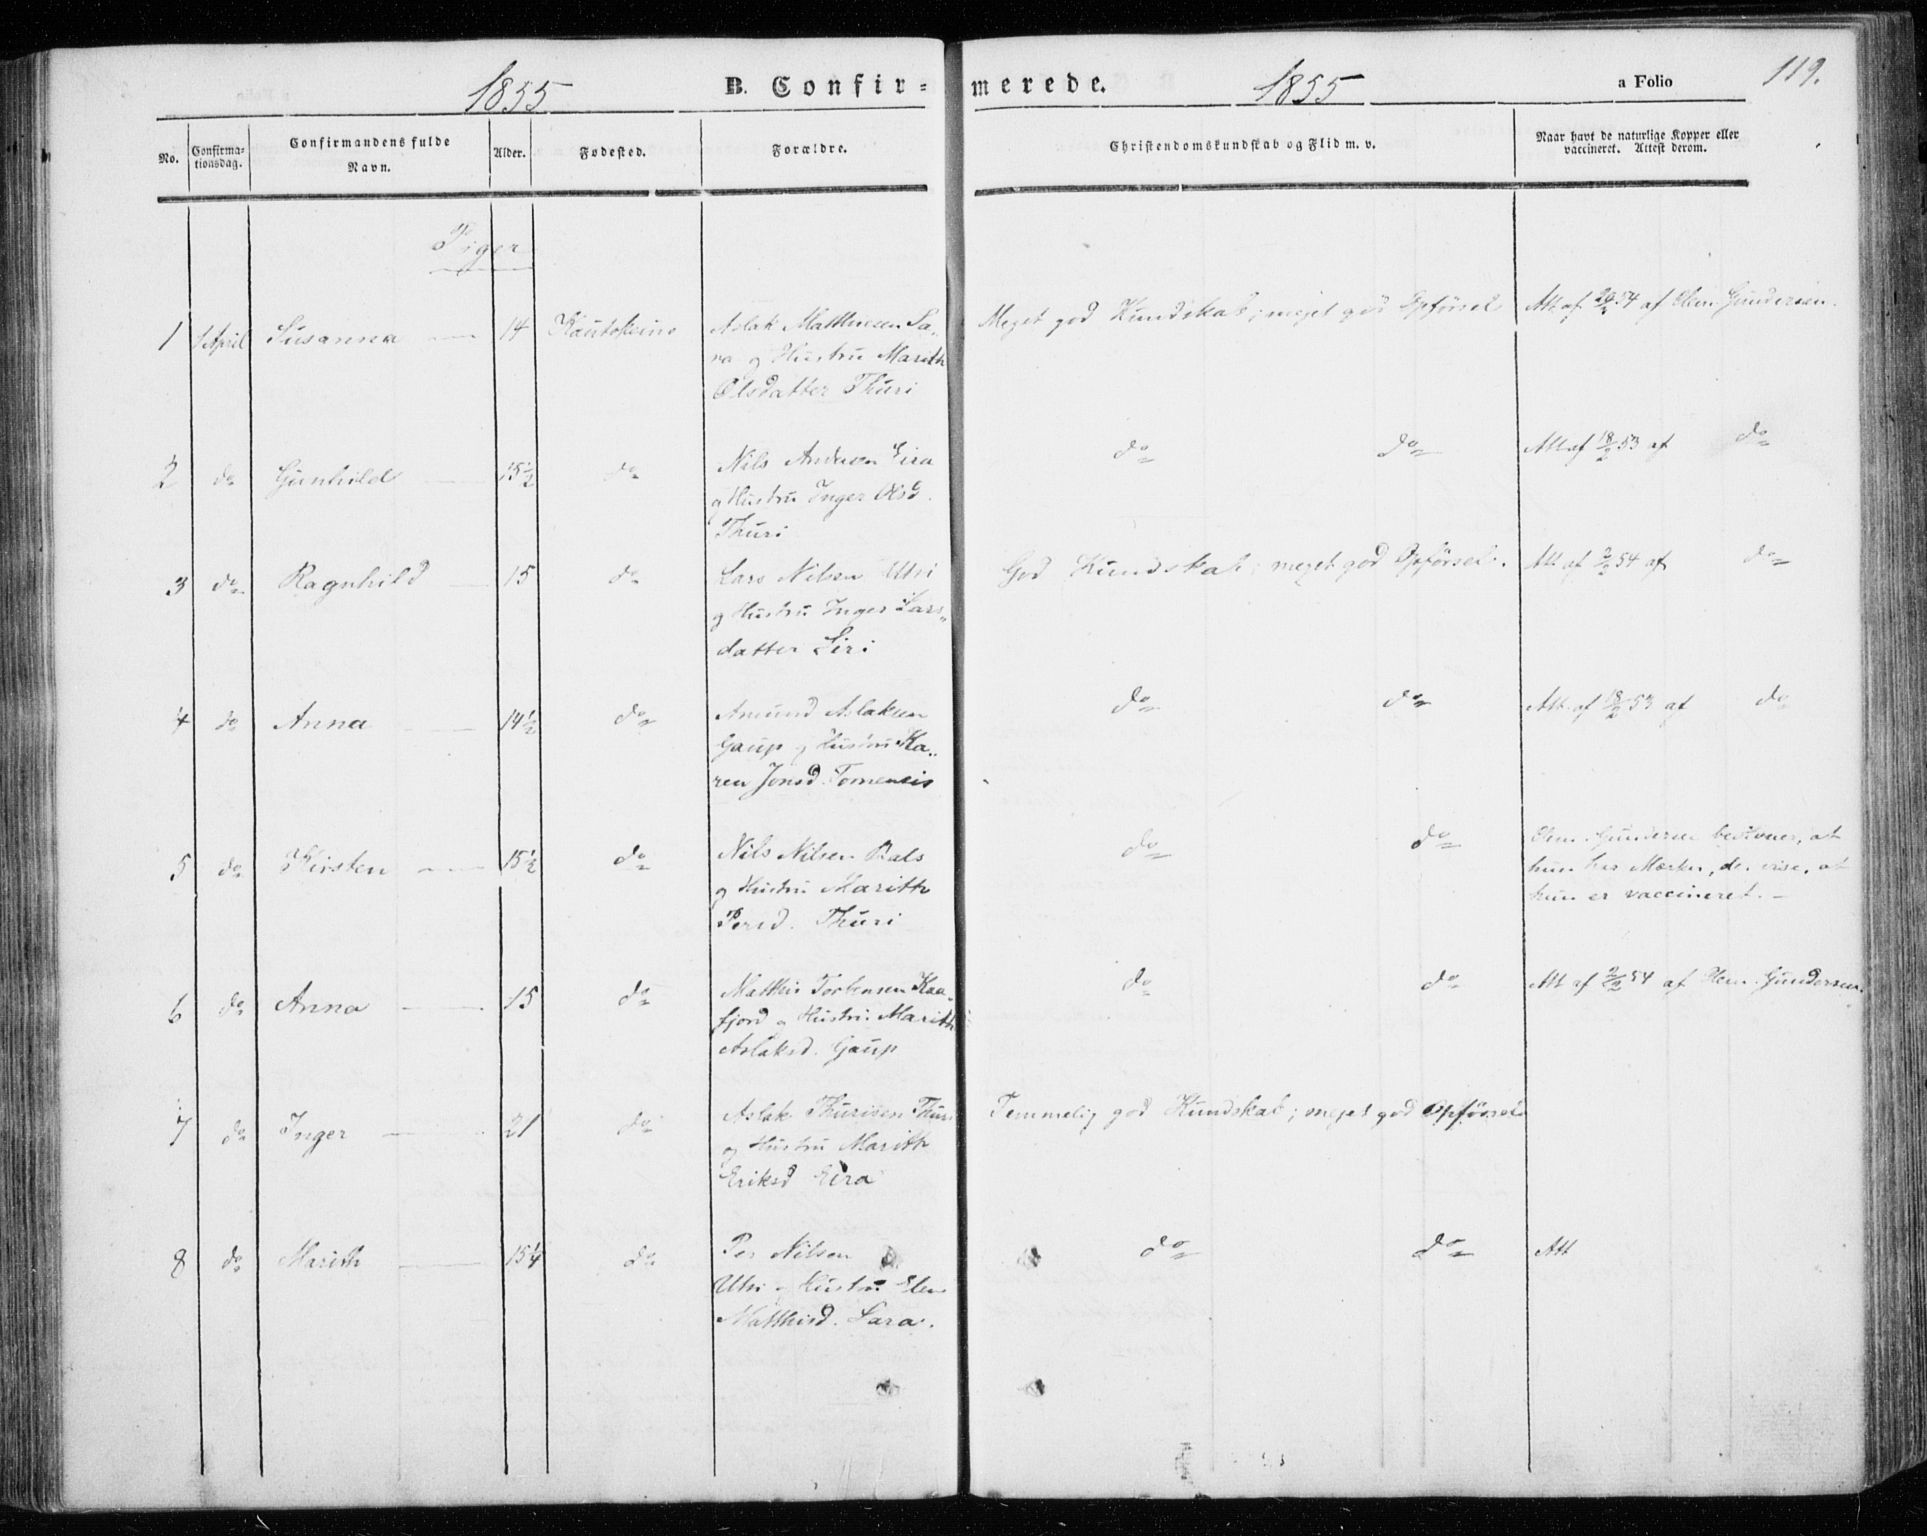 1855 B. Confir=merede. 1855 a Folio 119.
No. Confirma-tionsdag. Confirmandens fulde Navn. Alder. Fødested. Forældre. Christendomskundskab og Flid m. v. Naar havt de naturlige Kopper eller vaccineret. Attest derom.
Piger
1 1 April Susanna 14 Kautokeino Aslak Mathiesen Sa- Meget god Kundskab; meget god Opførsel Att. af 54 af Gundersen.
ra og Hustru Marith
Olsdatter Thuri
2 do Gunhild 15½ do Nils Andersen Eira do do Att. af 18/2 53 af do
og Hustru Inger Olsd.
Thuri
3 do Ragnhild 15 do Lars Nilsen Utsi God Kundskab; meget god Opførsel. Att. af 2/2 54 af do
og Hustru Inger Lars„
datter Siri
4 do Anna 14½ do Amund Aslaksen do do Att. af 18/2 53 af do
Gaup og Hustru Ka„
ren Jonsd. Tornensis
5 do Kirsten 15½ do Nils Nilsen Bals do do Gundersen bevidner, at
og Hustru Marith hun har Mærker, der vise, at
Persd. Thuri hun er vaccineret. -
6 do Anna 15 do Matthis Torbensen Kaa- do do Att af 2/2 54 af Gundersen.
fjord og Hustru Marith
Aslaksd. Gaup
7 do Inger 21 do Aslak Thurisen Thuri Temmelig god Kundskab; meget god Opførsel
og Hustru Marith
Eriksd Eira
8 do Marith 15¼ do Per Nilsen do do Att
Utsi og Hustru Elen
Matthisd. Sara.